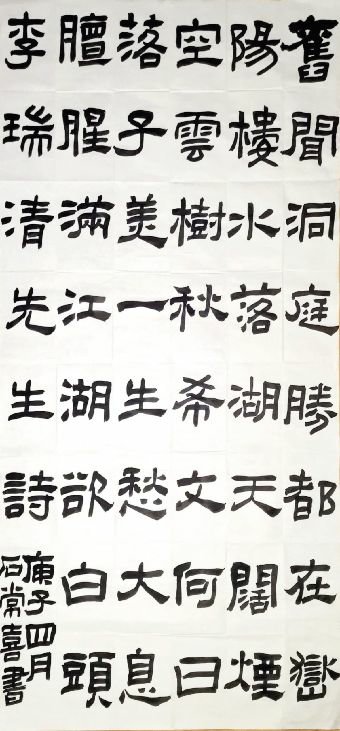 舊聞洞庭勝都在嶽
陽樓水落湖天闊煙
空雲樹秋希文何曰
落子美一生愁大息
膻腥滿江湖欲白頭
李瑞清先生詩
庚子四月
石常喜書